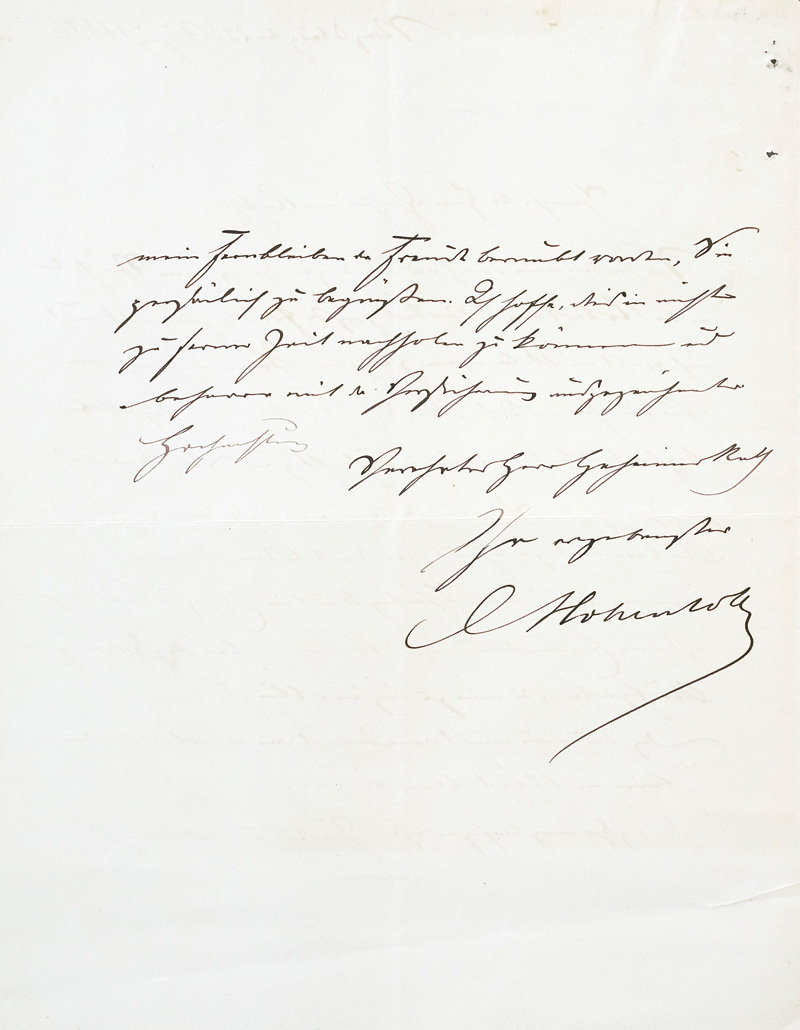 mein Fernbleiben der Freude beraubt worden, Sie
persönlich zu begrüßen. Ich hoffe, dies in nicht
zu ferner Zeit nachholen zu können und
beharre mit der Versicherung ausgezeichneter
Hochachtung
Verehrter Herr Geheimer Rath
Ihr ergebenster
Hohenlohe